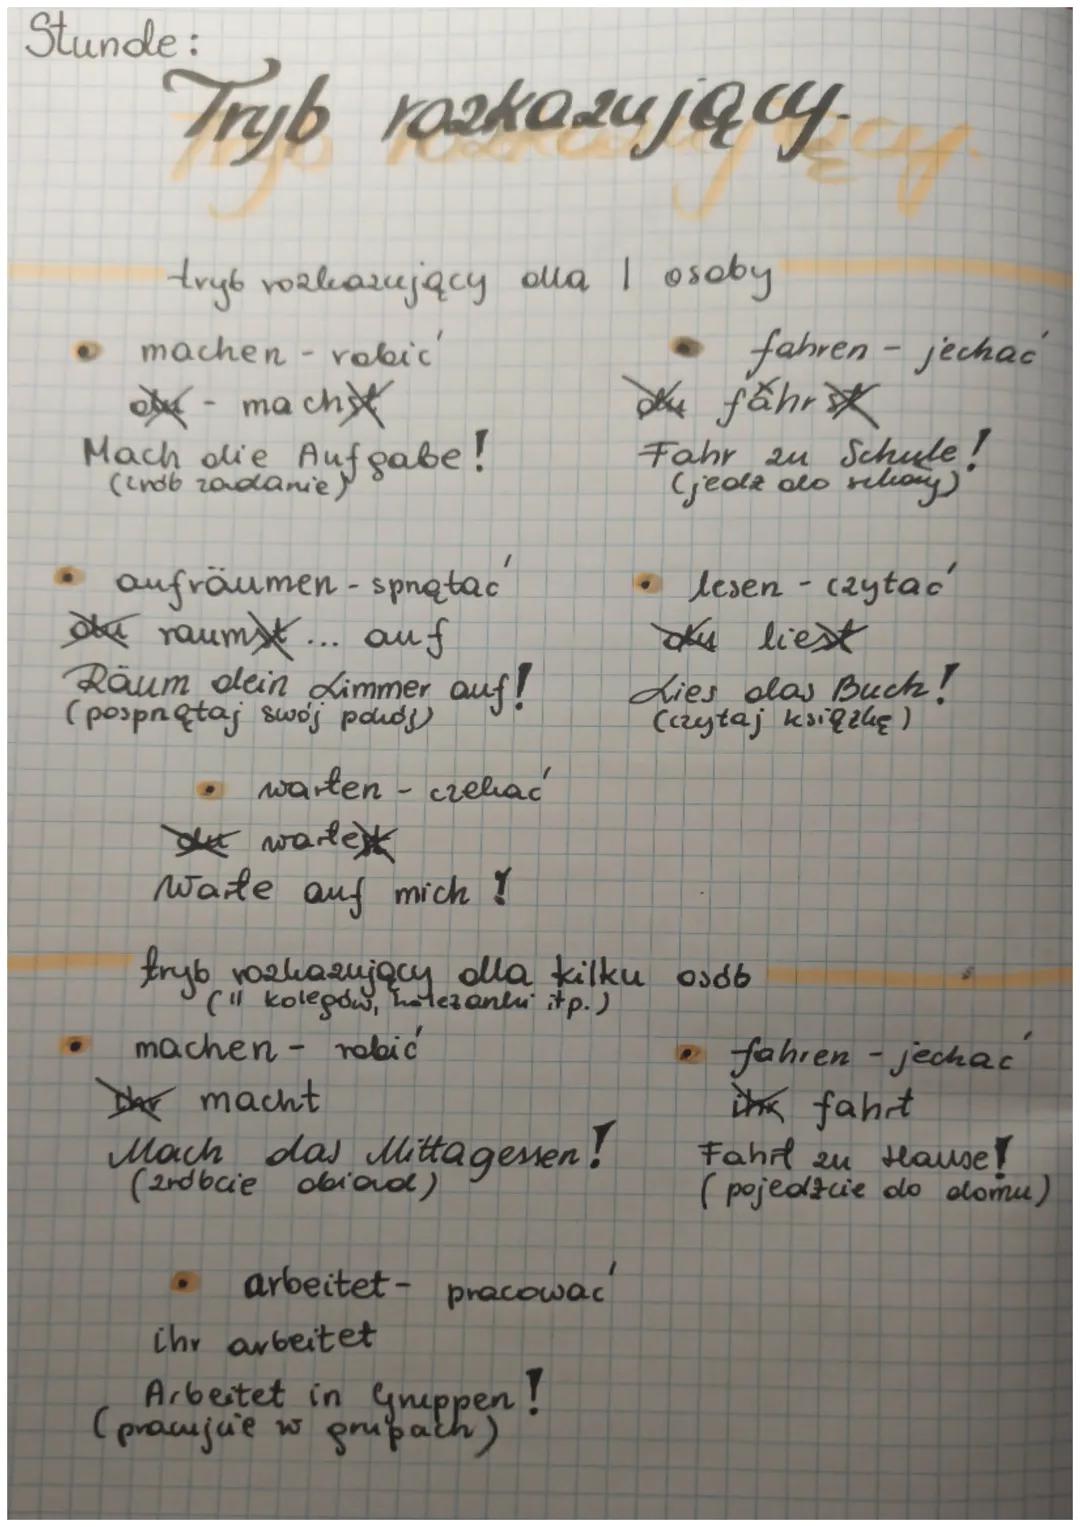 Stunde:
Tryb rozkazujący.
tryb rozkazujący dla 1 osoby
• machen - robić
du - machst
Mach die Aufgabe!
(zrób zadanie)
• fahren - jechać
du fährst
Fahr zu Schule!
(jedź do szkoły)
• aufräumen - sprzątać
du raumst ... auf
Räum dein Zimmer auf!
(posprzątaj swój pokój)
• lesen - czytać
du liest
Lies das Buch!
(czytaj książkę)
• warten - czekać
du wartest
Warte auf mich!
tryb rozkazujący dla kilku osób
(11 kolegów, koleżanki itp.)
• machen - robić
ihr macht
Mach das Mittagessen!
(zróbcie obiad)
• fahren - jechać
ihr fahrt
Fahrt zu Hause!
(pojedźcie do domu)
• arbeitet - pracować
ihr arbeitet
Arbeitet in Gruppen!
(pracujcie w grupach)